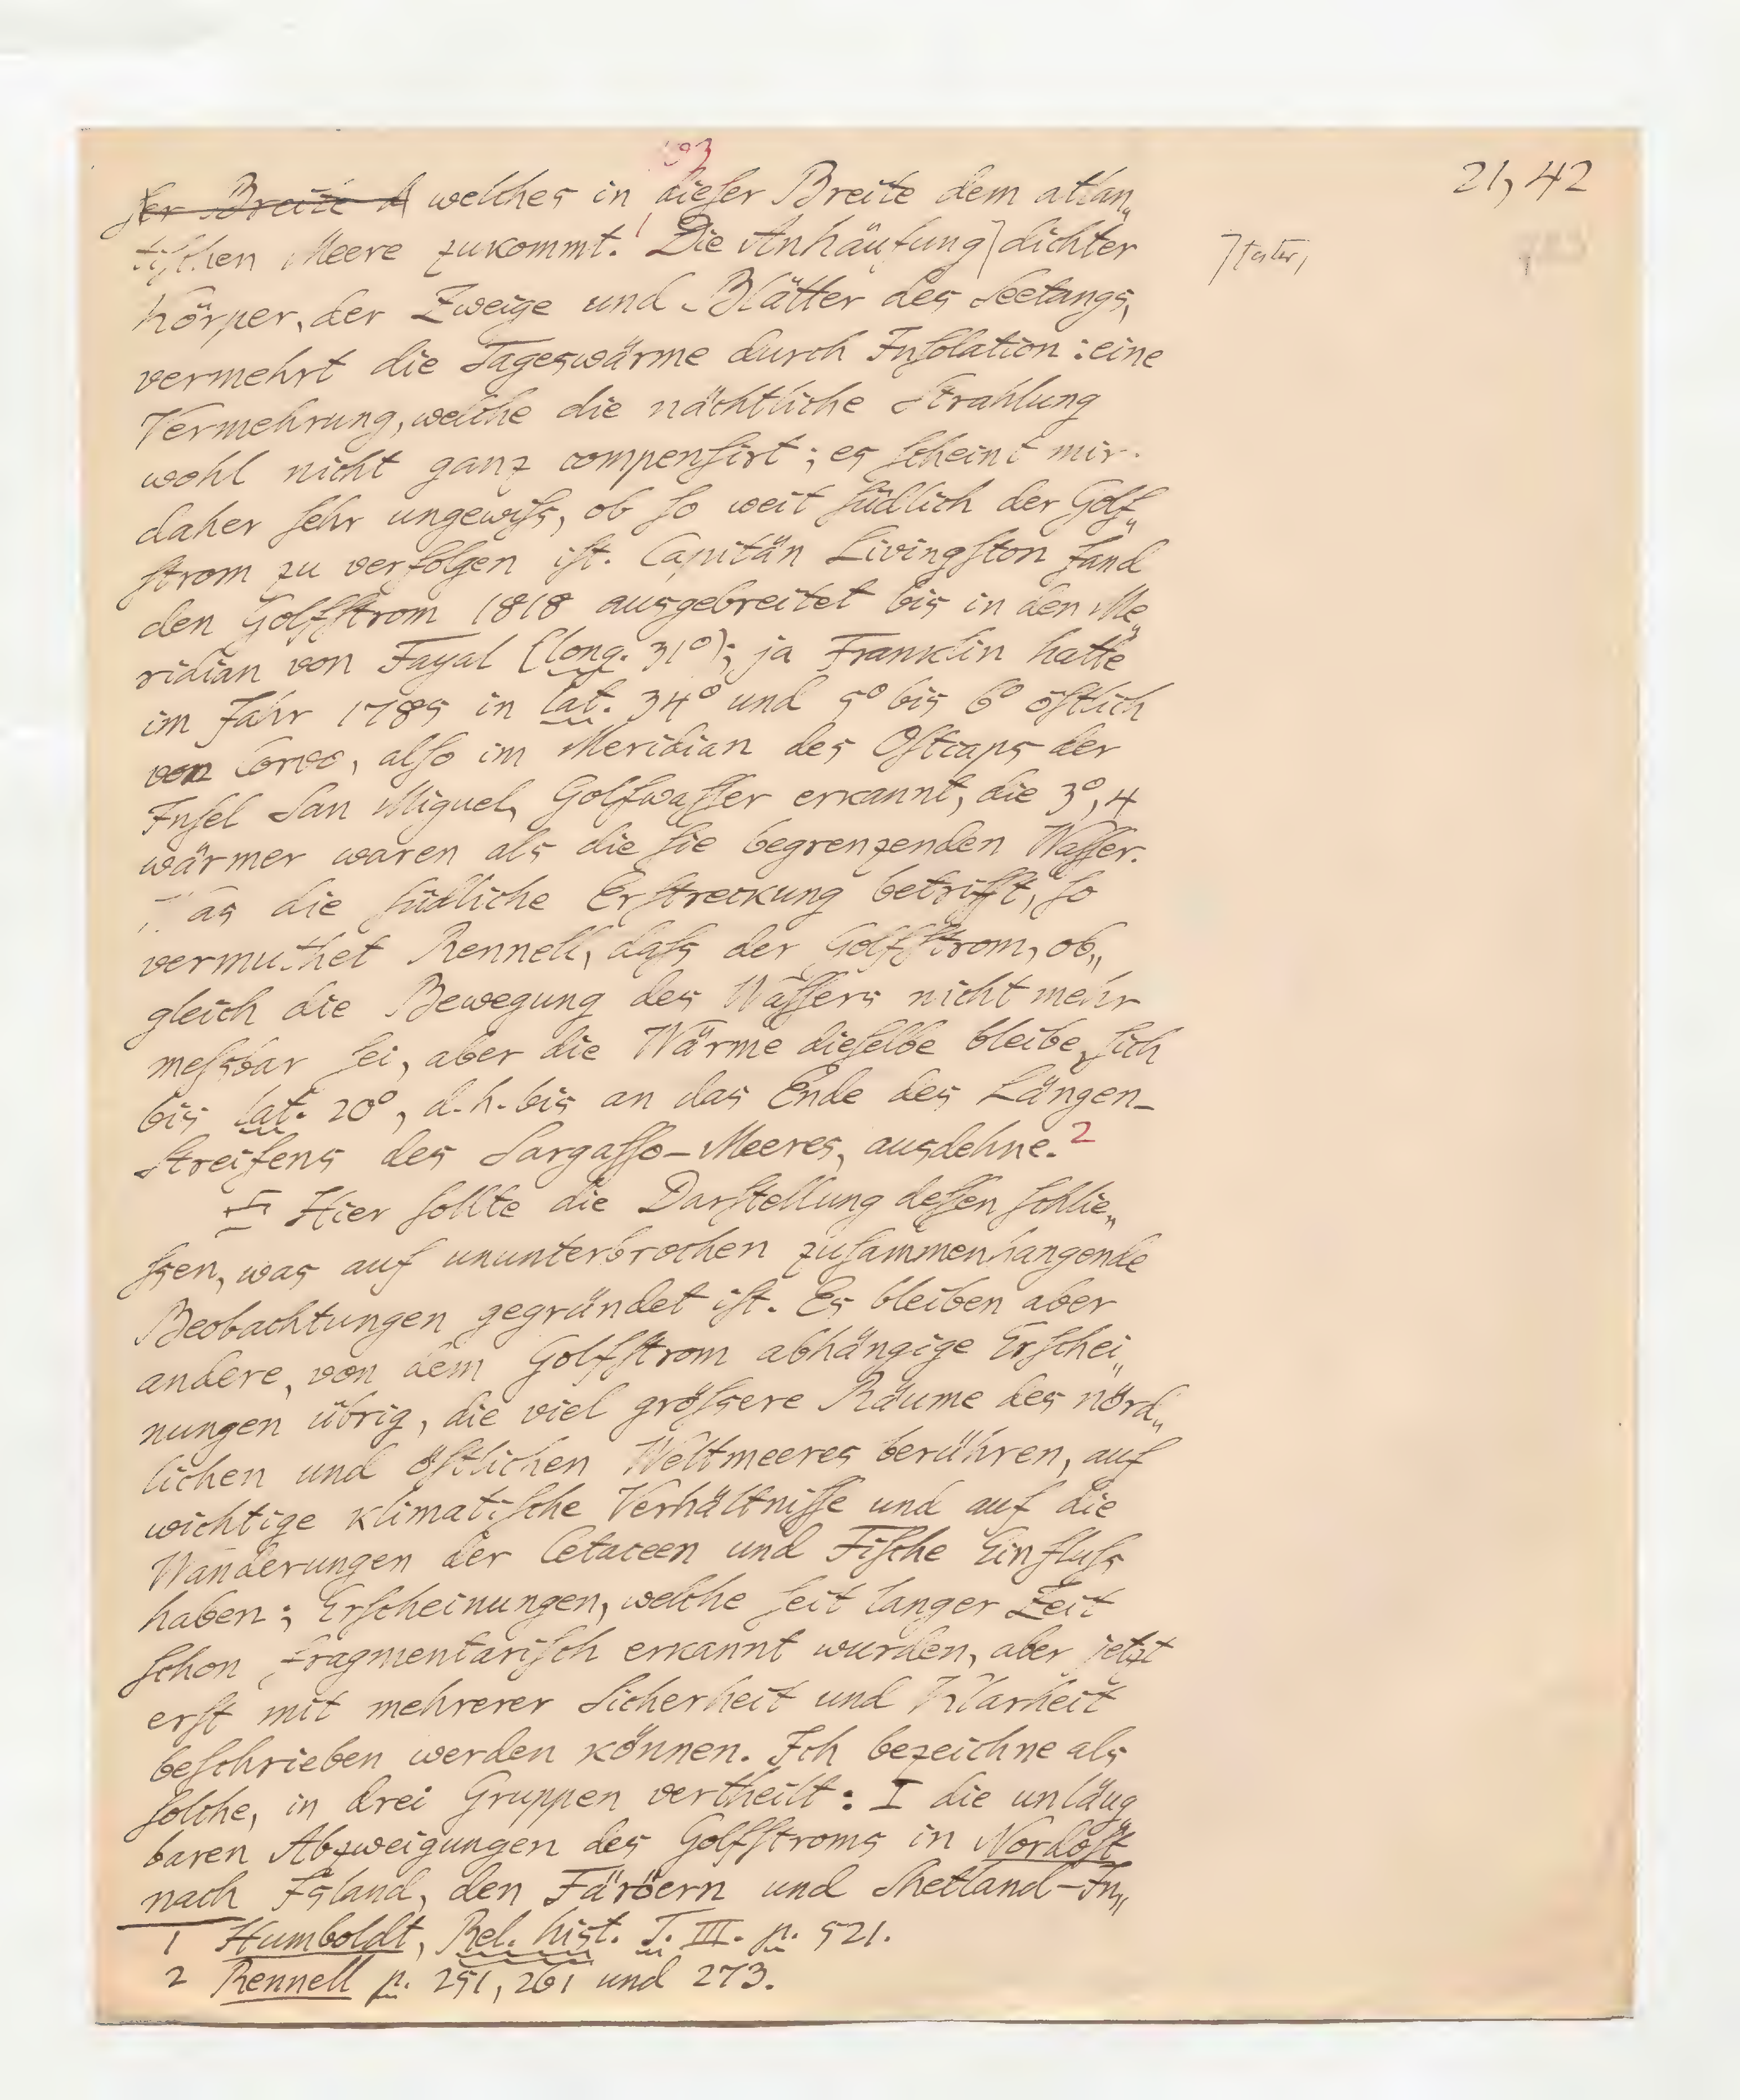 21,42
ſer Breite d welches in dieſer Breite dem atlan„
tiſchen Meere zukommt.¹ Die Anhäufung⌉ dichter
⌉feſter,
Körper, der Zweige und Blätter des Seetangs,
vermehrt die Tageswärme durch Inſolation: eine
Vermehrung, welche die nächtliche Strahlung
wohl nicht ganz compenſirt; es ſcheint mir
daher ſehr ungewiſs, ob ſo weit ſüdlich der Golf„
ſtrom zu verfolgen iſt. Capitän Livingſton fand
den Golfſtrom 1818 ausgebreitet bis in den Me„
ridian von Fayal (long. 31°); ja Franklin hatte
im Jahr 1785 in lat. 34° und 5° bis 6° öſtlich
von Corvo, alſo im Meridian des Oſtcaps der
Inſel San Miguel, Golfwaſſer erkannt, die 3°,4
wärmer waren als die ſie begrenzenden Waſſer.
Was die ſüdliche Erſtreckung betrifft, ſo
vermuthet Rennell, daſs der Golfſtrom, ob„
gleich die Bewegung des Waſſers nicht mehr
meſsbar ſei, aber die Wärme dieſelbe bleibe, ſich
bis lat. 20°, d.h. bis an das Ende des Längen-
Streifens des Sargaſſo-Meeres, ausdehne.²
Hier ſollte die Darſtellung deſſen ſchlie„
ſsen, was auf ununterbrochen zuſammenhangende
Beobachtungen gegründet iſt. Es bleiben aber
andere, von dem Golfſtrom abhängige Erſchei„
nungen übrig, die viel gröſsere Räume des nörd„
lichen und öſtlichen Weltmeeres berühren, auf
wichtige klimatiſche Verhältniſſe und auf die
Wanderungen der Cetaceen und Fiſche Einfluſs
haben; Erſcheinungen, welche ſeit langer Zeit
ſchon fragmentariſch erkannt wurden, aber jetzt
erſt mit mehrerer Sicherheit und Klarheit
beſchrieben werden können. Ich bezeichne als
ſolche, in drei Gruppen vertheilt: I die unläug„
baren Abzweigungen des Golfſtroms in Nordoſt
nach Island, den Färöern und Shetland-In„
1 Humboldt, Rel. hist. T. III. p. 521.
2 Rennell p. 251, 261 und 273.